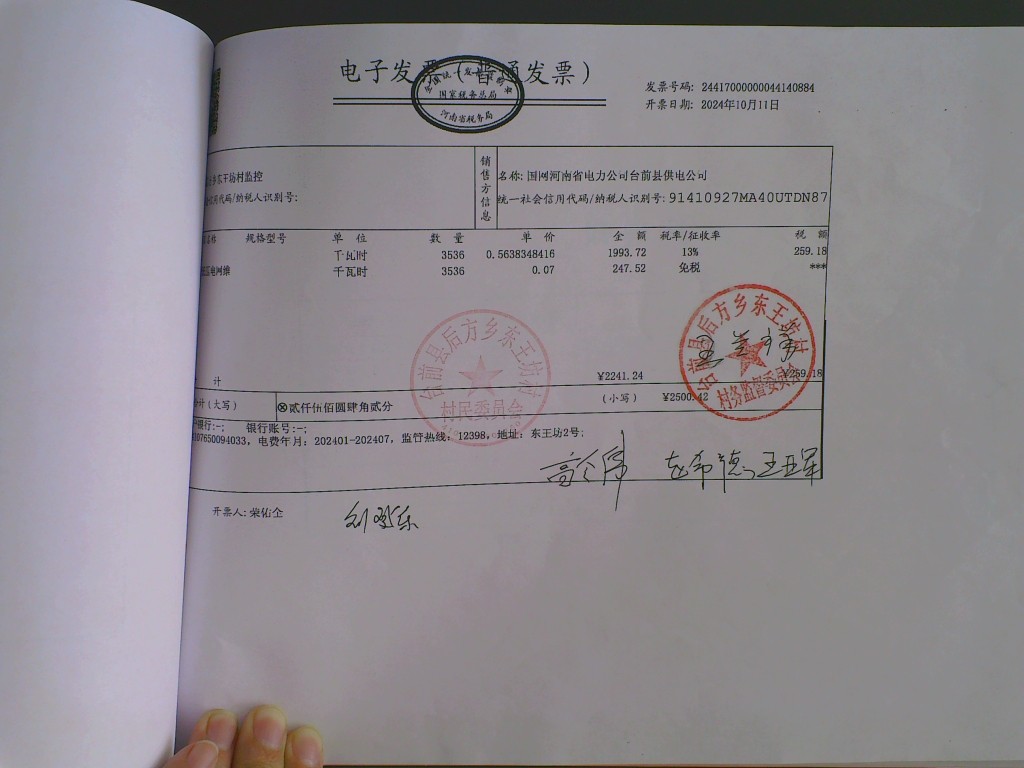 电子发票（普通发票）
全国统一发票监制章
国家税务总局
河南省税务局
发票号码: 24417000000044140884
开票日期: 2024年10月11日
东王坊村监控
信用代码/纳税人识别号:
销售方信息
名称: 国网河南省电力公司台前县供电公司
统一社会信用代码/纳税人识别号: 91410927MA40UTDN87
规格型号 单 位 数 量 单 价 金 额 税率/征收率 税 额
千瓦时 3536 0.5638348416 1993.72 13% 259.18
电网维 千瓦时 3536 0.07 247.52 免税 ***
计 ¥2241.24 ¥259.18
合计（大写） ⊗贰仟伍佰圆肆角贰分 （小写） ¥2500.42
银行:-; 银行账号:-;
07650094033, 电费年月: 202401-202407, 监管热线: 12398, 地址: 东王坊2号;
台前县后方乡东王坊村
村民委员会
台前县后方乡东王坊村
村务监督委员会
王亚军
开票人: 荣佑全